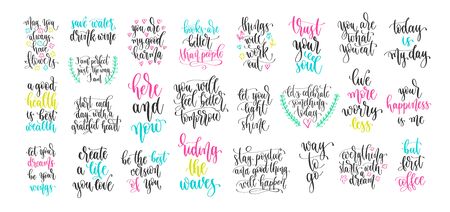 may you
always
have
flowers
save water,
drink wine
you are
my good
karma
books are
better
than
people
things
will
work
out
trust
your
soul
you are
what
you eat
today
is
my day
I am perfect
just the way
I am
a good
health
is best
wealth
start each
day with a
grateful heart
here
and
now
you will
feel better
tomorrow
let your
light
shine
let's celebrate
something
today
live
more
worry
less
your
happiness
is me
let your
dreams
be your
wings
create
a life
you love
be the best
version
of you
riding
the
waves
stay positive
and good things
will happen
way
to
go
everything
starts
with a
dream
but
first
coffee